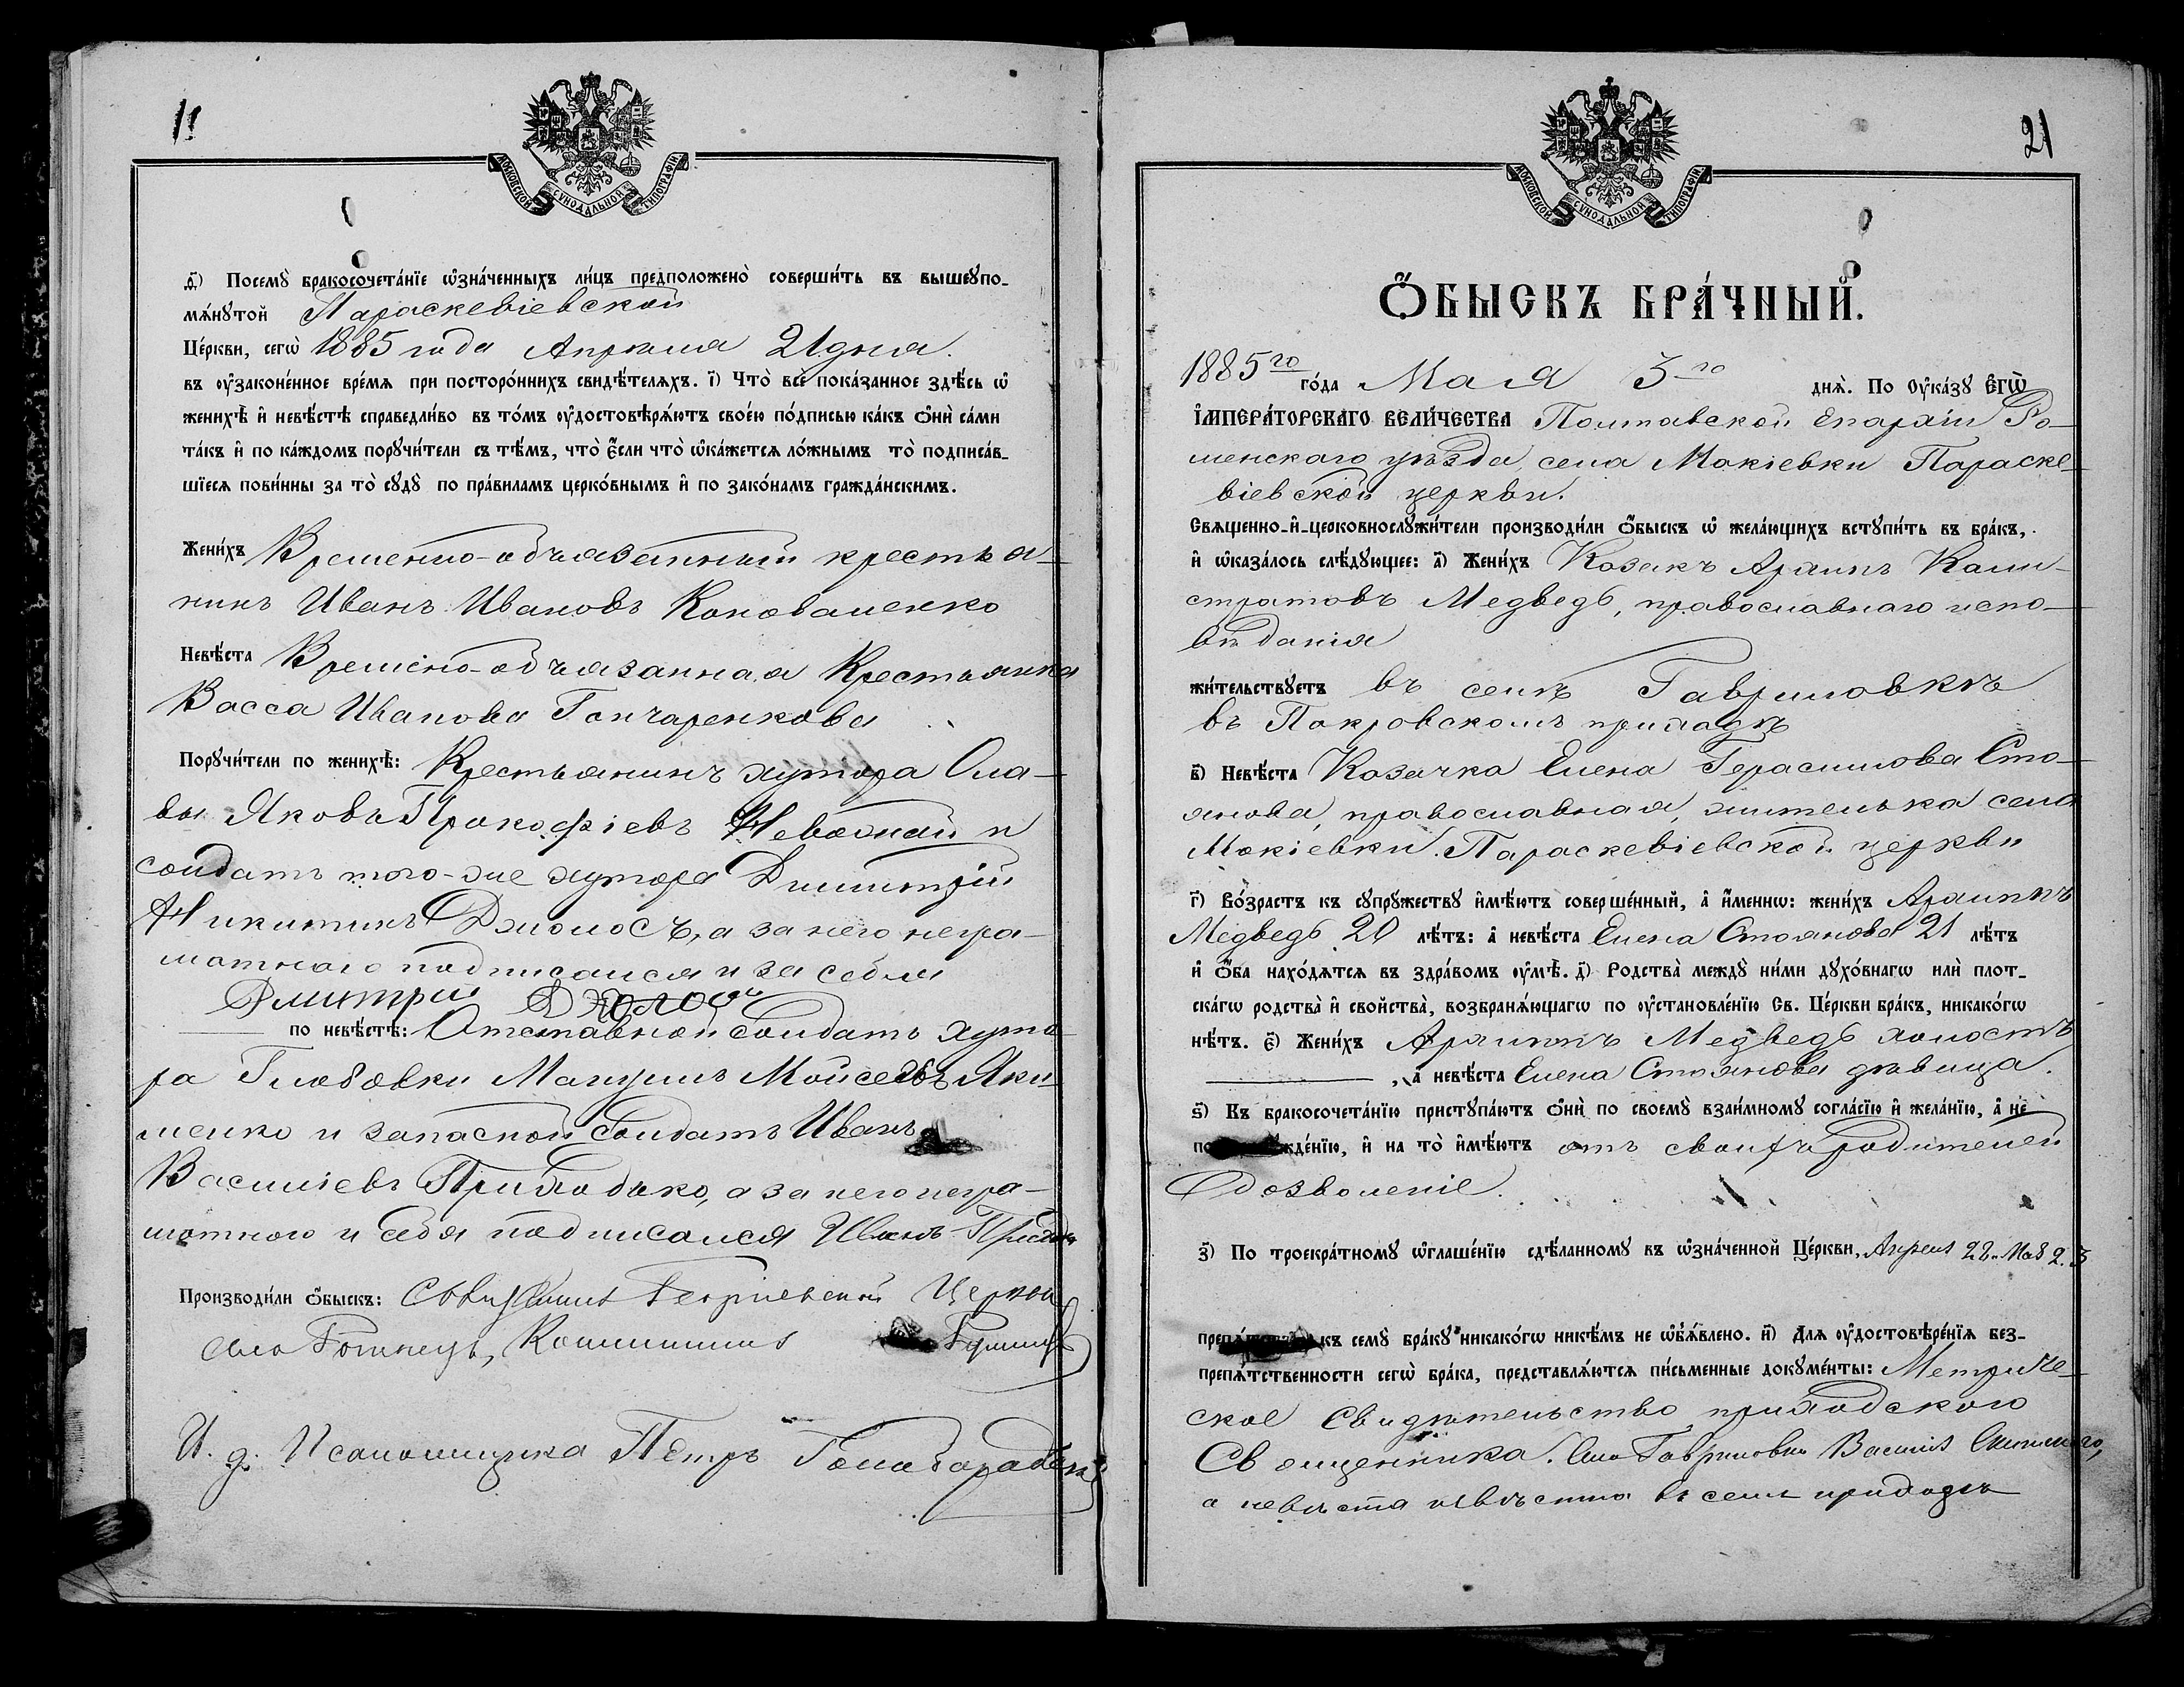 11
МОСКОВСКОЙ СѴНОДАЛЬНОЙ ТИПОГРАФІИ
д҃) Посемꙋ̀ бракосочета́нїе ѡ҆зна́ченныхъ ли́цъ предположено̀ соверши́ть въ вышеꙋпо-
мѧ́нꙋтой Параскевіевской
Це́ркви, сегѡ̀ 1885 года Апрѣля 21 дня.
въ оу҆законе́нное вре́мѧ при посторо́ннихъ свидѣ́телѧхъ. і҃) Что̀ всѐ пока́занное здѣ́сь ѡ҆
женихѣ̀ и҆ невѣ́стѣ справедли́во въ то́мъ оу҆достовѣрѧ́ютъ свое́ю по́дписью ка́къ ѻ҆нѝ са́ми
та́къ и҆ по ка́ждомъ порꙋчи́тели съ тѣ́мъ, что̀ є҆́сли что̀ ѡ҆ка́жетсѧ ло́жнымъ то̀ подписа́в-
шїесѧ пови́нны за то̀ сꙋдꙋ̀ по пра́виламъ церко́внымъ и҆ по зако́намъ гражда́нскимъ.
Жени́хъ Временно-обязанный крестья-
нинъ Иванъ Ивановъ Коноваленко
Невѣ́ста Времено-обязанная Крестьянка
Васса Иванова Гончаренкова
Порꙋчи́тели по женихѣ̀: Крестьянинъ хутора Сла-
вы Яковъ Прокофіевъ и
солдатъ того-же хутора Димитрій
Никитинъ Джолосъ, а за него негра-
матнаго подписался и за себя
Дмитрий Джолосъ
по невѣ́стѣ: Отставной солдатъ хуто-
ра Глобовки Мойсеевъ Яки-
менко и запасной солдатъ Иванъ
Василіевъ Приходько, а за него негра-
мотного и себя подписался Иванъ
Производи́ли ѻ҆́быскъ: Георгіевской Церкви
села
И. д. Псаломщика Петръ
21
МОСКОВСКОЙ СѴНОДАЛЬНОЙ ТИПОГРАФІИ
Ѻ҆́БЫСКЪ БРА́ЧНЫЙ.
1885го го́да Мая 3-го днѧ̀. По Оу҆ка́зꙋ Є҆ГѠ̀
І҆МПЕРА́ТОРСКАГО ВЕЛИ́ЧЕСТВА Полтавской Епархіи Ро-
менскаго уѣзда, села Мокіевки Параске-
віевской церкви.
Свѧщенно-и҆-церковнослꙋжи́тели производи́ли ѻ҆́быскъ ѡ҆ жела́ющихъ вступи́ть въ бра́къ,
и҆ ѡ҆каза́лось слѣ́дꙋющее: а҃) Жени́хъ Козакъ Архипъ Кали-
стратовъ Медведь, православнаго испо-
вѣданія
жи́тельствꙋетъ въ селѣ Гавриловкѣ
въ Покровскомъ приходѣ
в҃) Невѣ́ста Козачка Елена Герасимова Сто-
янова, православная, жителька села
Мокіевки. Параскевіевской церкви
г҃) Во́зрастъ къ сꙋпрꙋ́жествꙋ и҆мѣ́ютъ соверше́нный, а҆ и҆́меннѡ: жени́хъ Архипъ
Медведь 20 лѣ́тъ: а҆ невѣ́ста Елена Стоянова 21 лѣ́тъ
и҆ ѻ҆́ба нахо́дѧтсѧ въ здра́вомъ оу҆мѣ̀. д҃) Родства̀ междꙋ̀ ни́ми дꙋхо́внагѡ илѝ плот-
ска́гѡ родства̀ и҆ свойства̀, возбранѧ́ющагѡ по оу҆становле́нїю Св. Це́ркви бра́къ, никако́гѡ
нѣ́тъ. є҃) Жени́хъ Архиппъ Медведь холостъ
, а҆ невѣ́ста Елена Стоянова дѣвица.
ѕ҃) Къ бракосочета́нїю пристꙋпа́ютъ ѻ҆нѝ по своемꙋ̀ взаи́мномꙋ согла́сїю и҆ жела́нїю, а҆ не
по жде́нїю, и҆ на то̀ и҆мѣ́ютъ отъ своихъ родителей
дозволеніе.
з҃) По троекра́тномꙋ ѡ҆глаше́нїю сдѣ́ланномꙋ въ ѡ҆зна́ченной Це́ркви,
къ семꙋ̀ бра́кꙋ никако́гѡ никѣ́мъ не ѡ҆б̾ѧ́влено. и҃) Длѧ оу҆достовѣре́нїѧ без-
препѧ́тственности сегѡ̀ бра́ка, представлѧ́ютсѧ пи́сьменные докꙋме́нты: Метриче-
ское свидѣтельство приходского
Священника. села Гавриловки Василія
а невѣста извѣстна въ семъ приходѣ